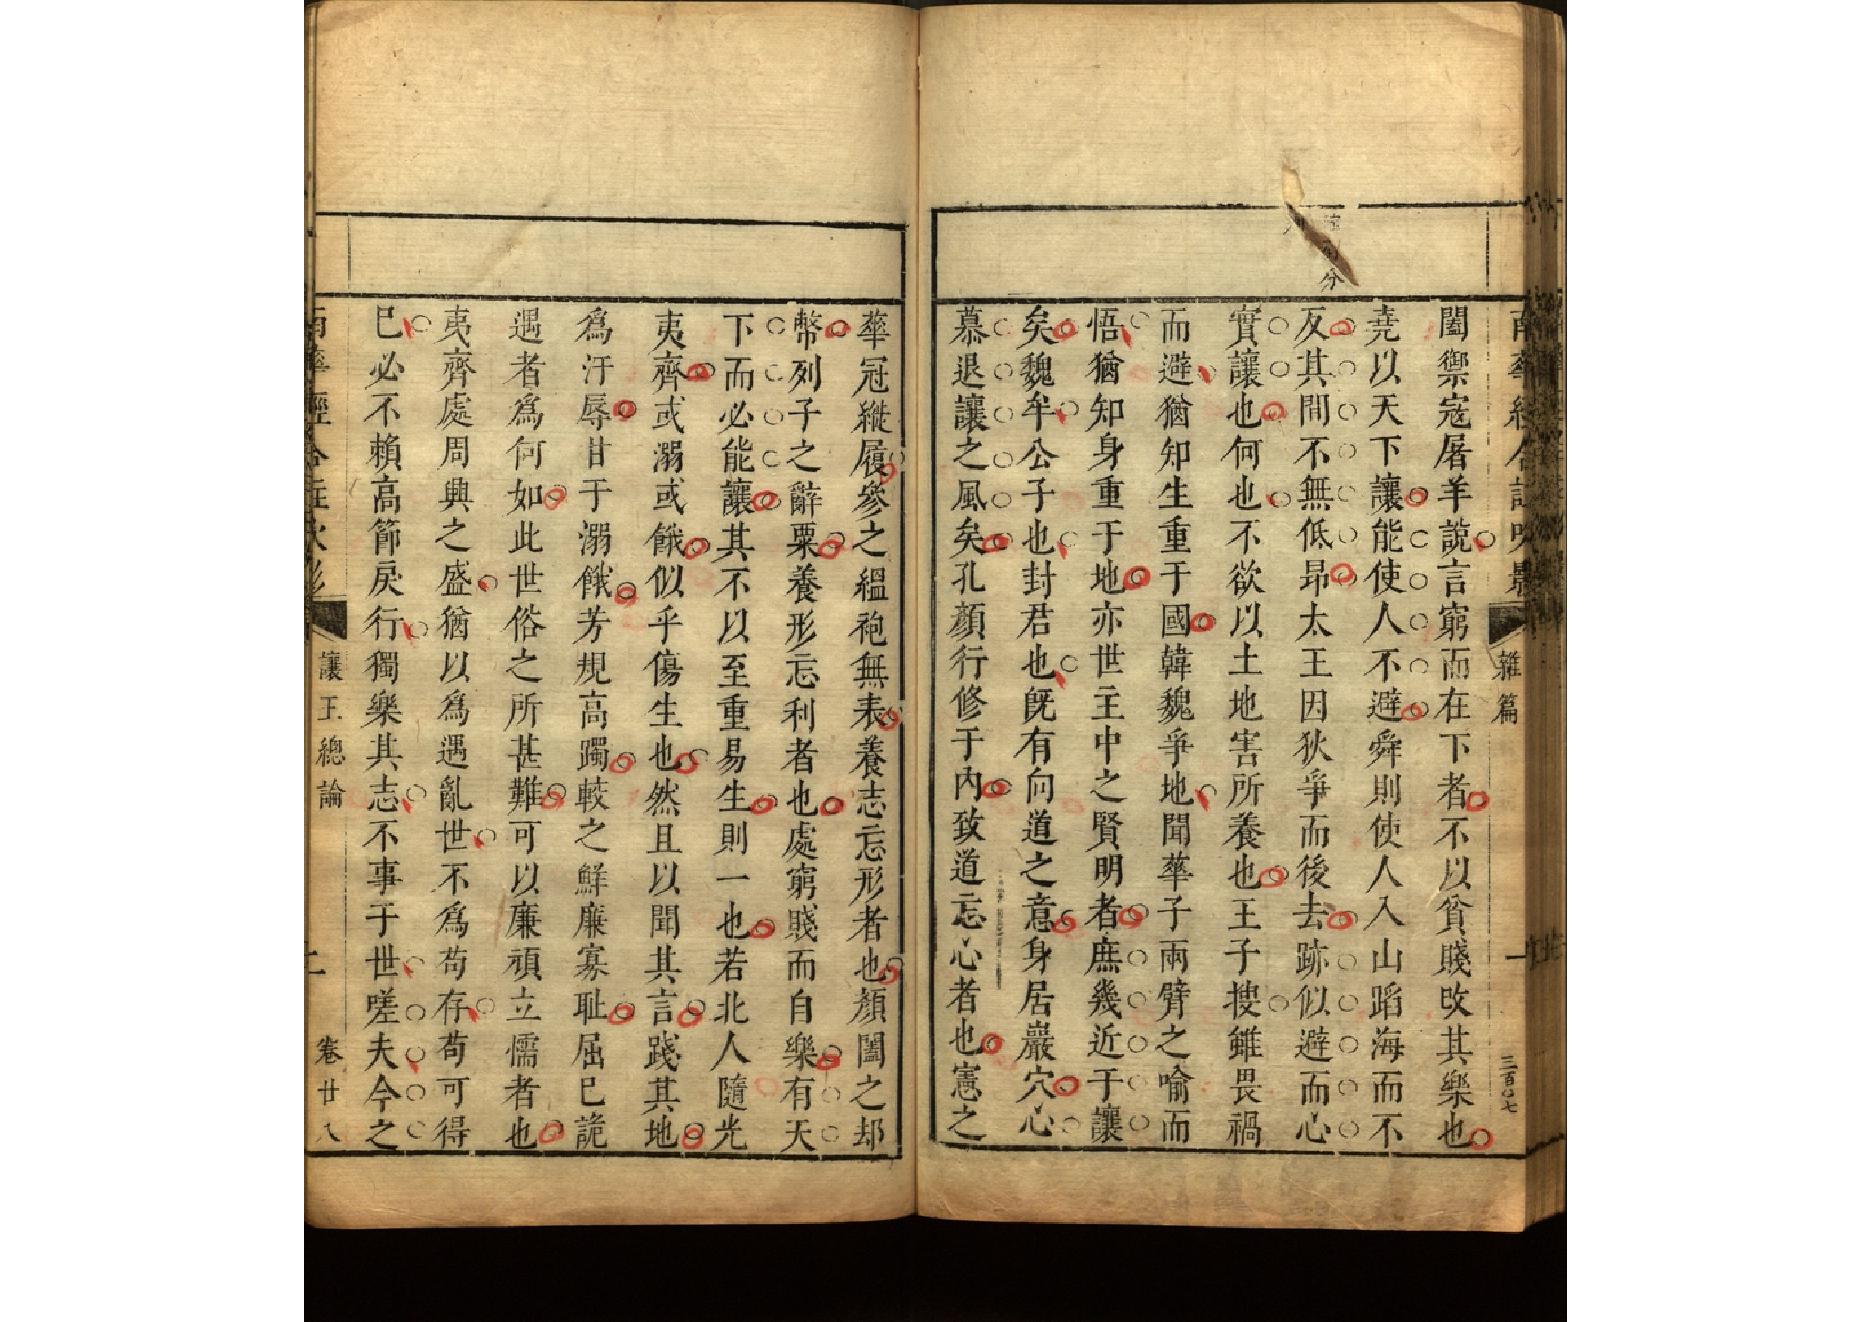 南華經合註吹影
雜篇
一
三百〇七
闔禦寇屠羊說言窮而在下者不以貧賤改其樂也
堯以天下讓能使人不避舜則使人入山蹈海而不
反其間不無低昂太王因狄爭而後去跡似避而心
實讓也何也不欲以土地害所養也王子搜雖畏禍
而避猶知生重于國韓魏爭地聞華子兩臂之喻而
悟猶知身重于地亦世主中之賢明者庶幾近于讓
矣魏牟公子也封君也既有向道之意身居巖穴心
慕退讓之風矣孔顏行修于內致道忘心者也憲之
華冠縰履參之縕袍無表養志忘形者也顏闔之却
幣列子之辭粟養形忘利者也處窮賤而自樂有天
下而必能讓其不以至重易生則一也若北人隨光
夷齊或溺或餓似乎傷生也然且以聞其言踐其地
為汙辱甘于溺餓芳規高躅較之鮮廉寡恥屈己詭
遇者為何如此世俗之所甚難可以廉頑立懦者也
夷齊處周興之盛猶以為遇亂世不為苟存苟可得
已必不賴高節戾行獨樂其志不事于世嗟夫今之
南華經合註吹影
讓王總論
二
卷廿八